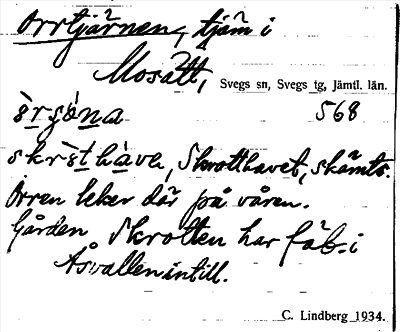 Orrtjärnen, tjärn i
Mosätt,
Svegs sn, Svegs tg, Jämtl. län.
568
skròthàven, Skrotthavet, skämts.
Orren leker där på våren.
Gården Skrotten har fäb. i
Åsvallen intill.
C. Lindberg 1934.